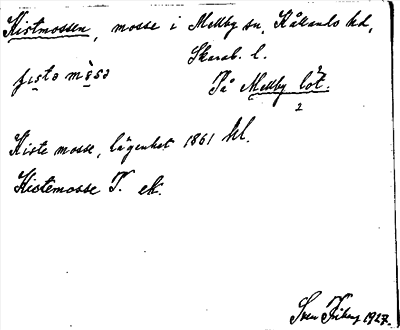 Kistmossen, mosse i Mellby sn, Kållands hd,
Skarab. l.
På Mellby lot.
2
Kiste mosse, lägenhet 1861
Kistemosse T. ek.
Sven Friberg 1927.